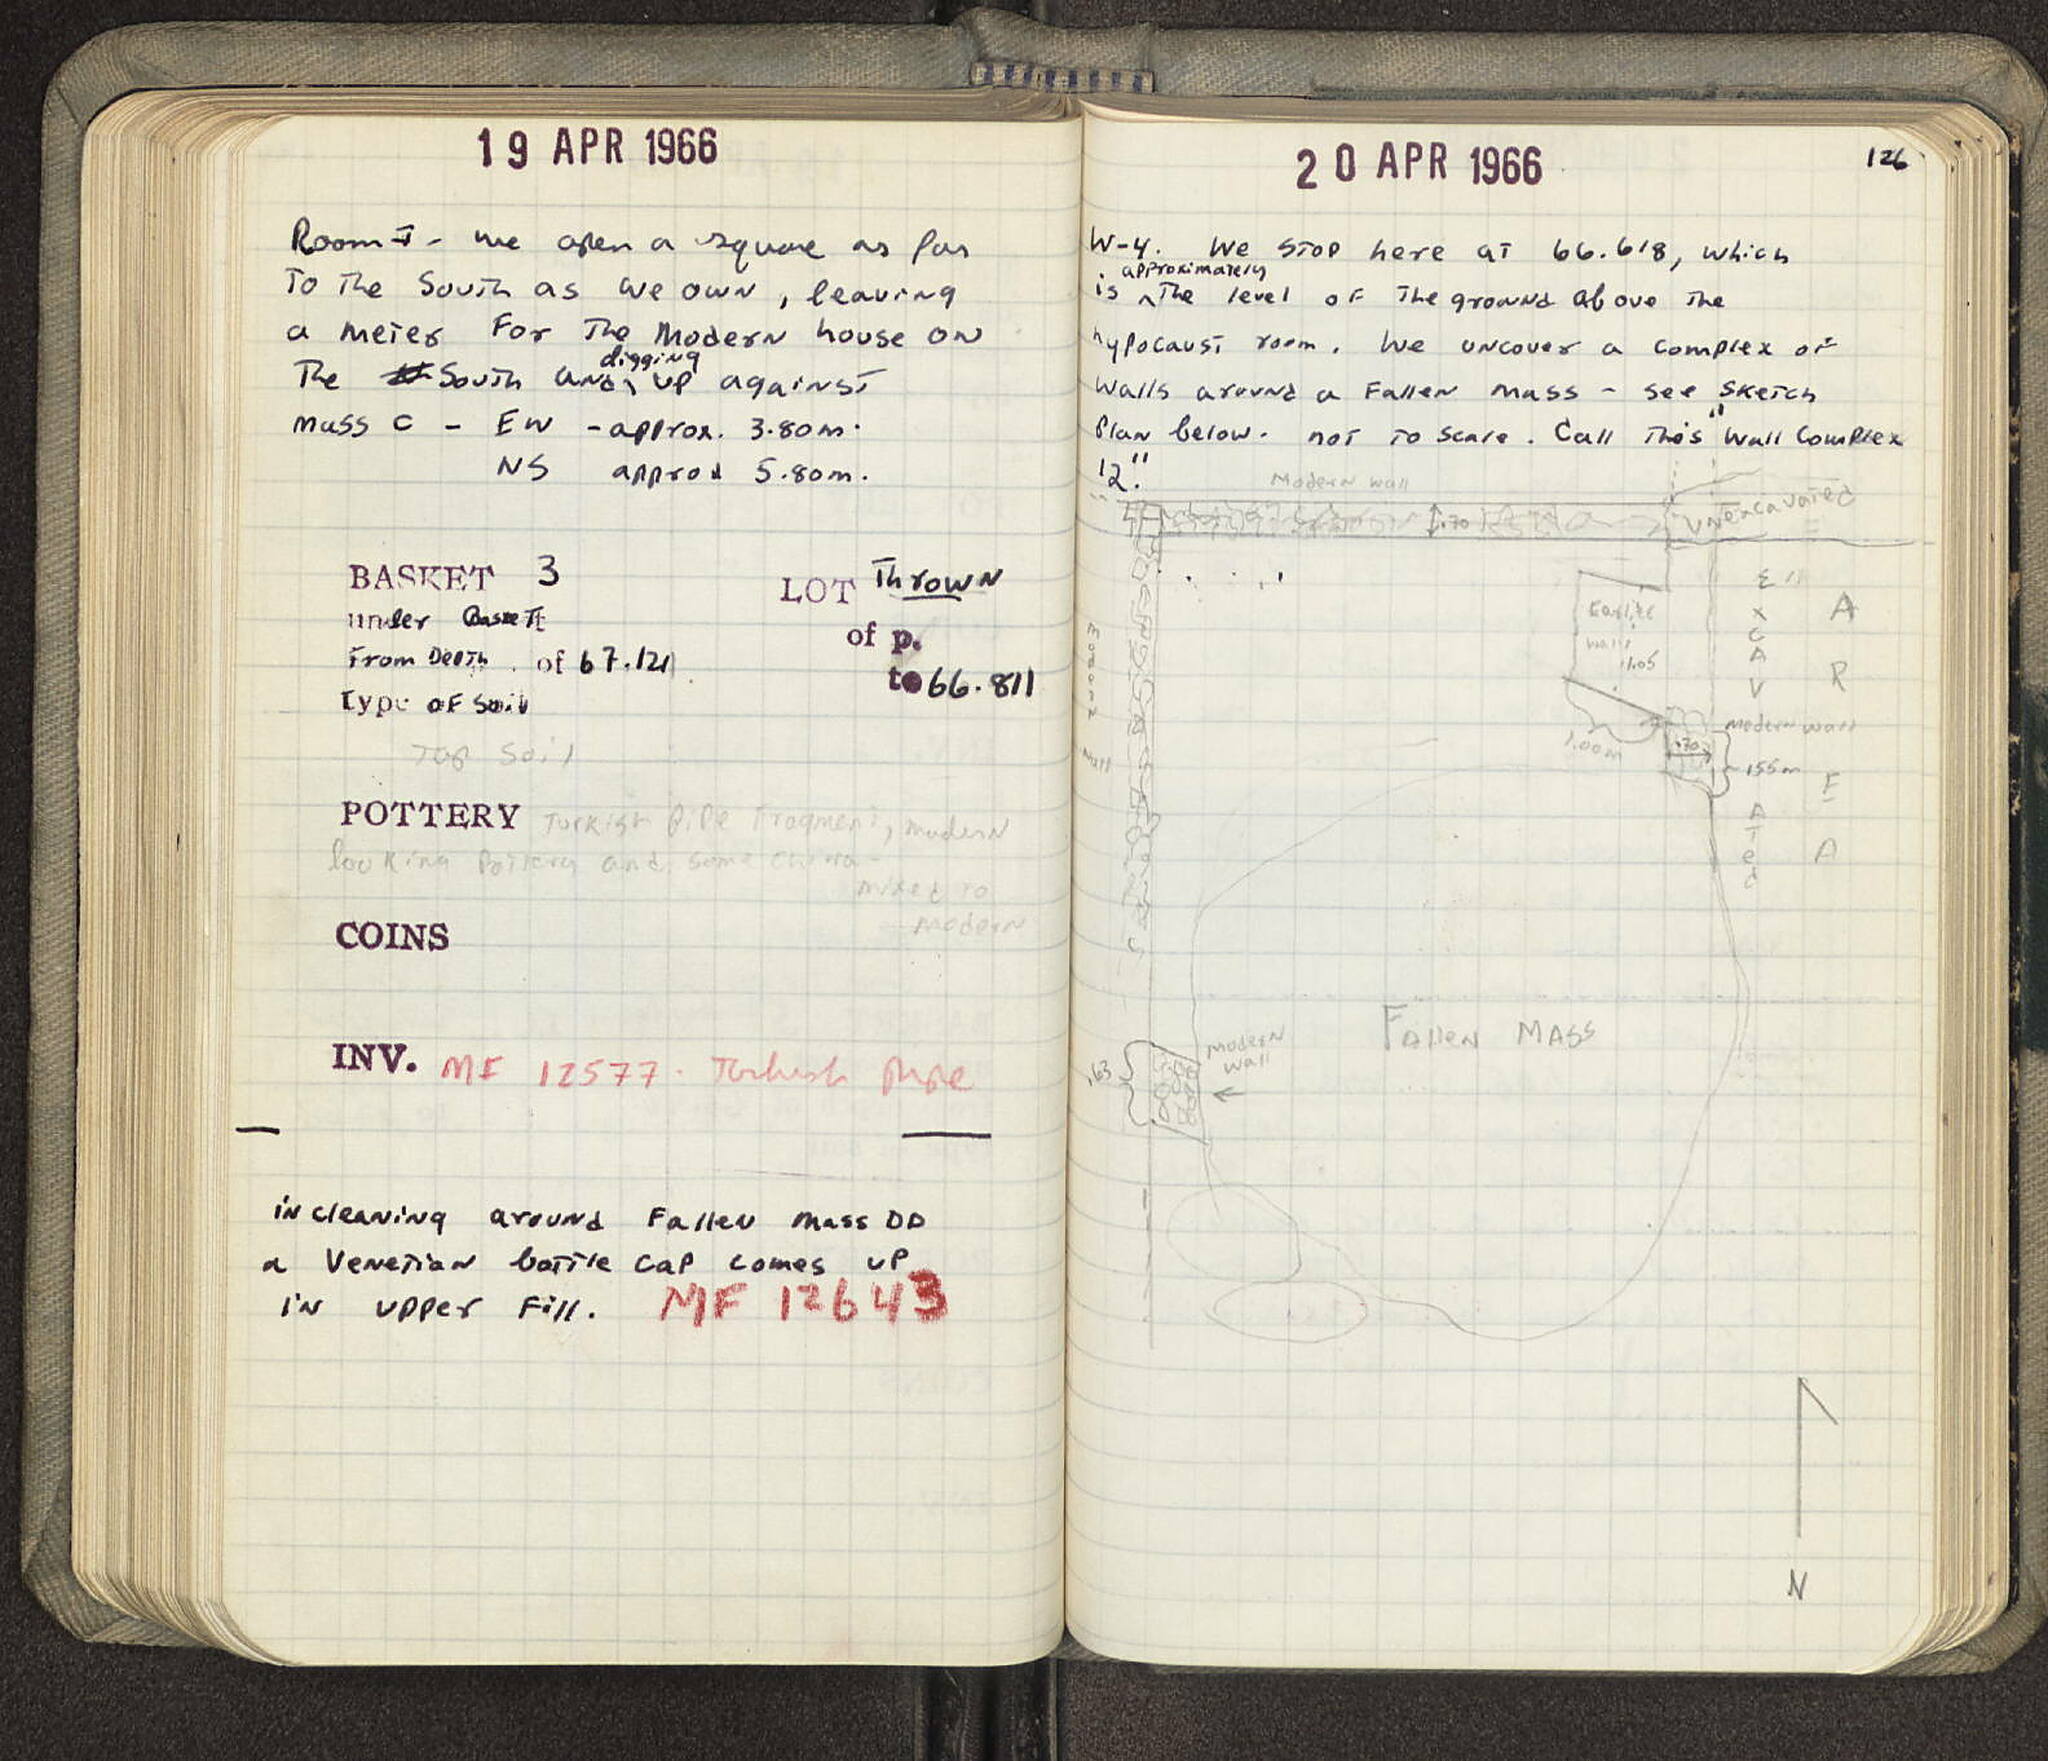 19 APR 1966
Room I - we open a square as far
to the South as we own, leaving
a meter for the Modern house on
The South and digging up against
mass C - EW - approx. 3.80m.
NS approx 5.80m.
BASKET 3
LOT Thrown
under Basket
of p.
From Depth of 67.121
to 66.811
Type of soil
Top Soil
POTTERY Turkish pipe fragment, modern
looking pottery and some china -
mixed to
modern
COINS
INV. MF 12577. Turkish pipe
in cleaning around Fallen mass DD
a Venetian bottle cap comes up
in upper fill. MF 12643
20 APR 1966
126
W-4. We stop here at 66.618, which
is approximately the level of the ground above the
hypocaust room. We uncover a complex of
walls around a Fallen mass - see sketch
plan below. not to scale. Call this "Wall Complex
12."
Modern wall
.70
Unexcavated
Earlier
walls
1.05
1.00m
EXCAVATED
AREA
modern wall
.70
155m
wall
Fallen Mass
modern
wall
.63
N